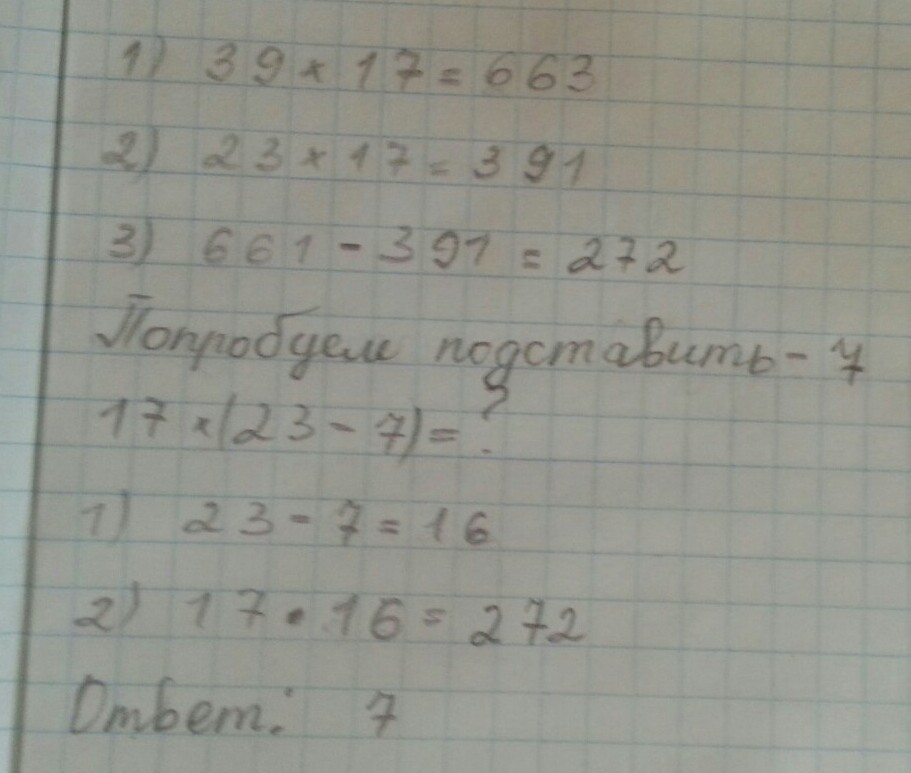 1) 39 × 17 = 663
2) 23 × 17 = 391
3) 661 - 391 = 272
Попробуем подставить - 7
17 × (23 - 7) = ?
1) 23 - 7 = 16
2) 17 • 16 = 272
Ответ: 7